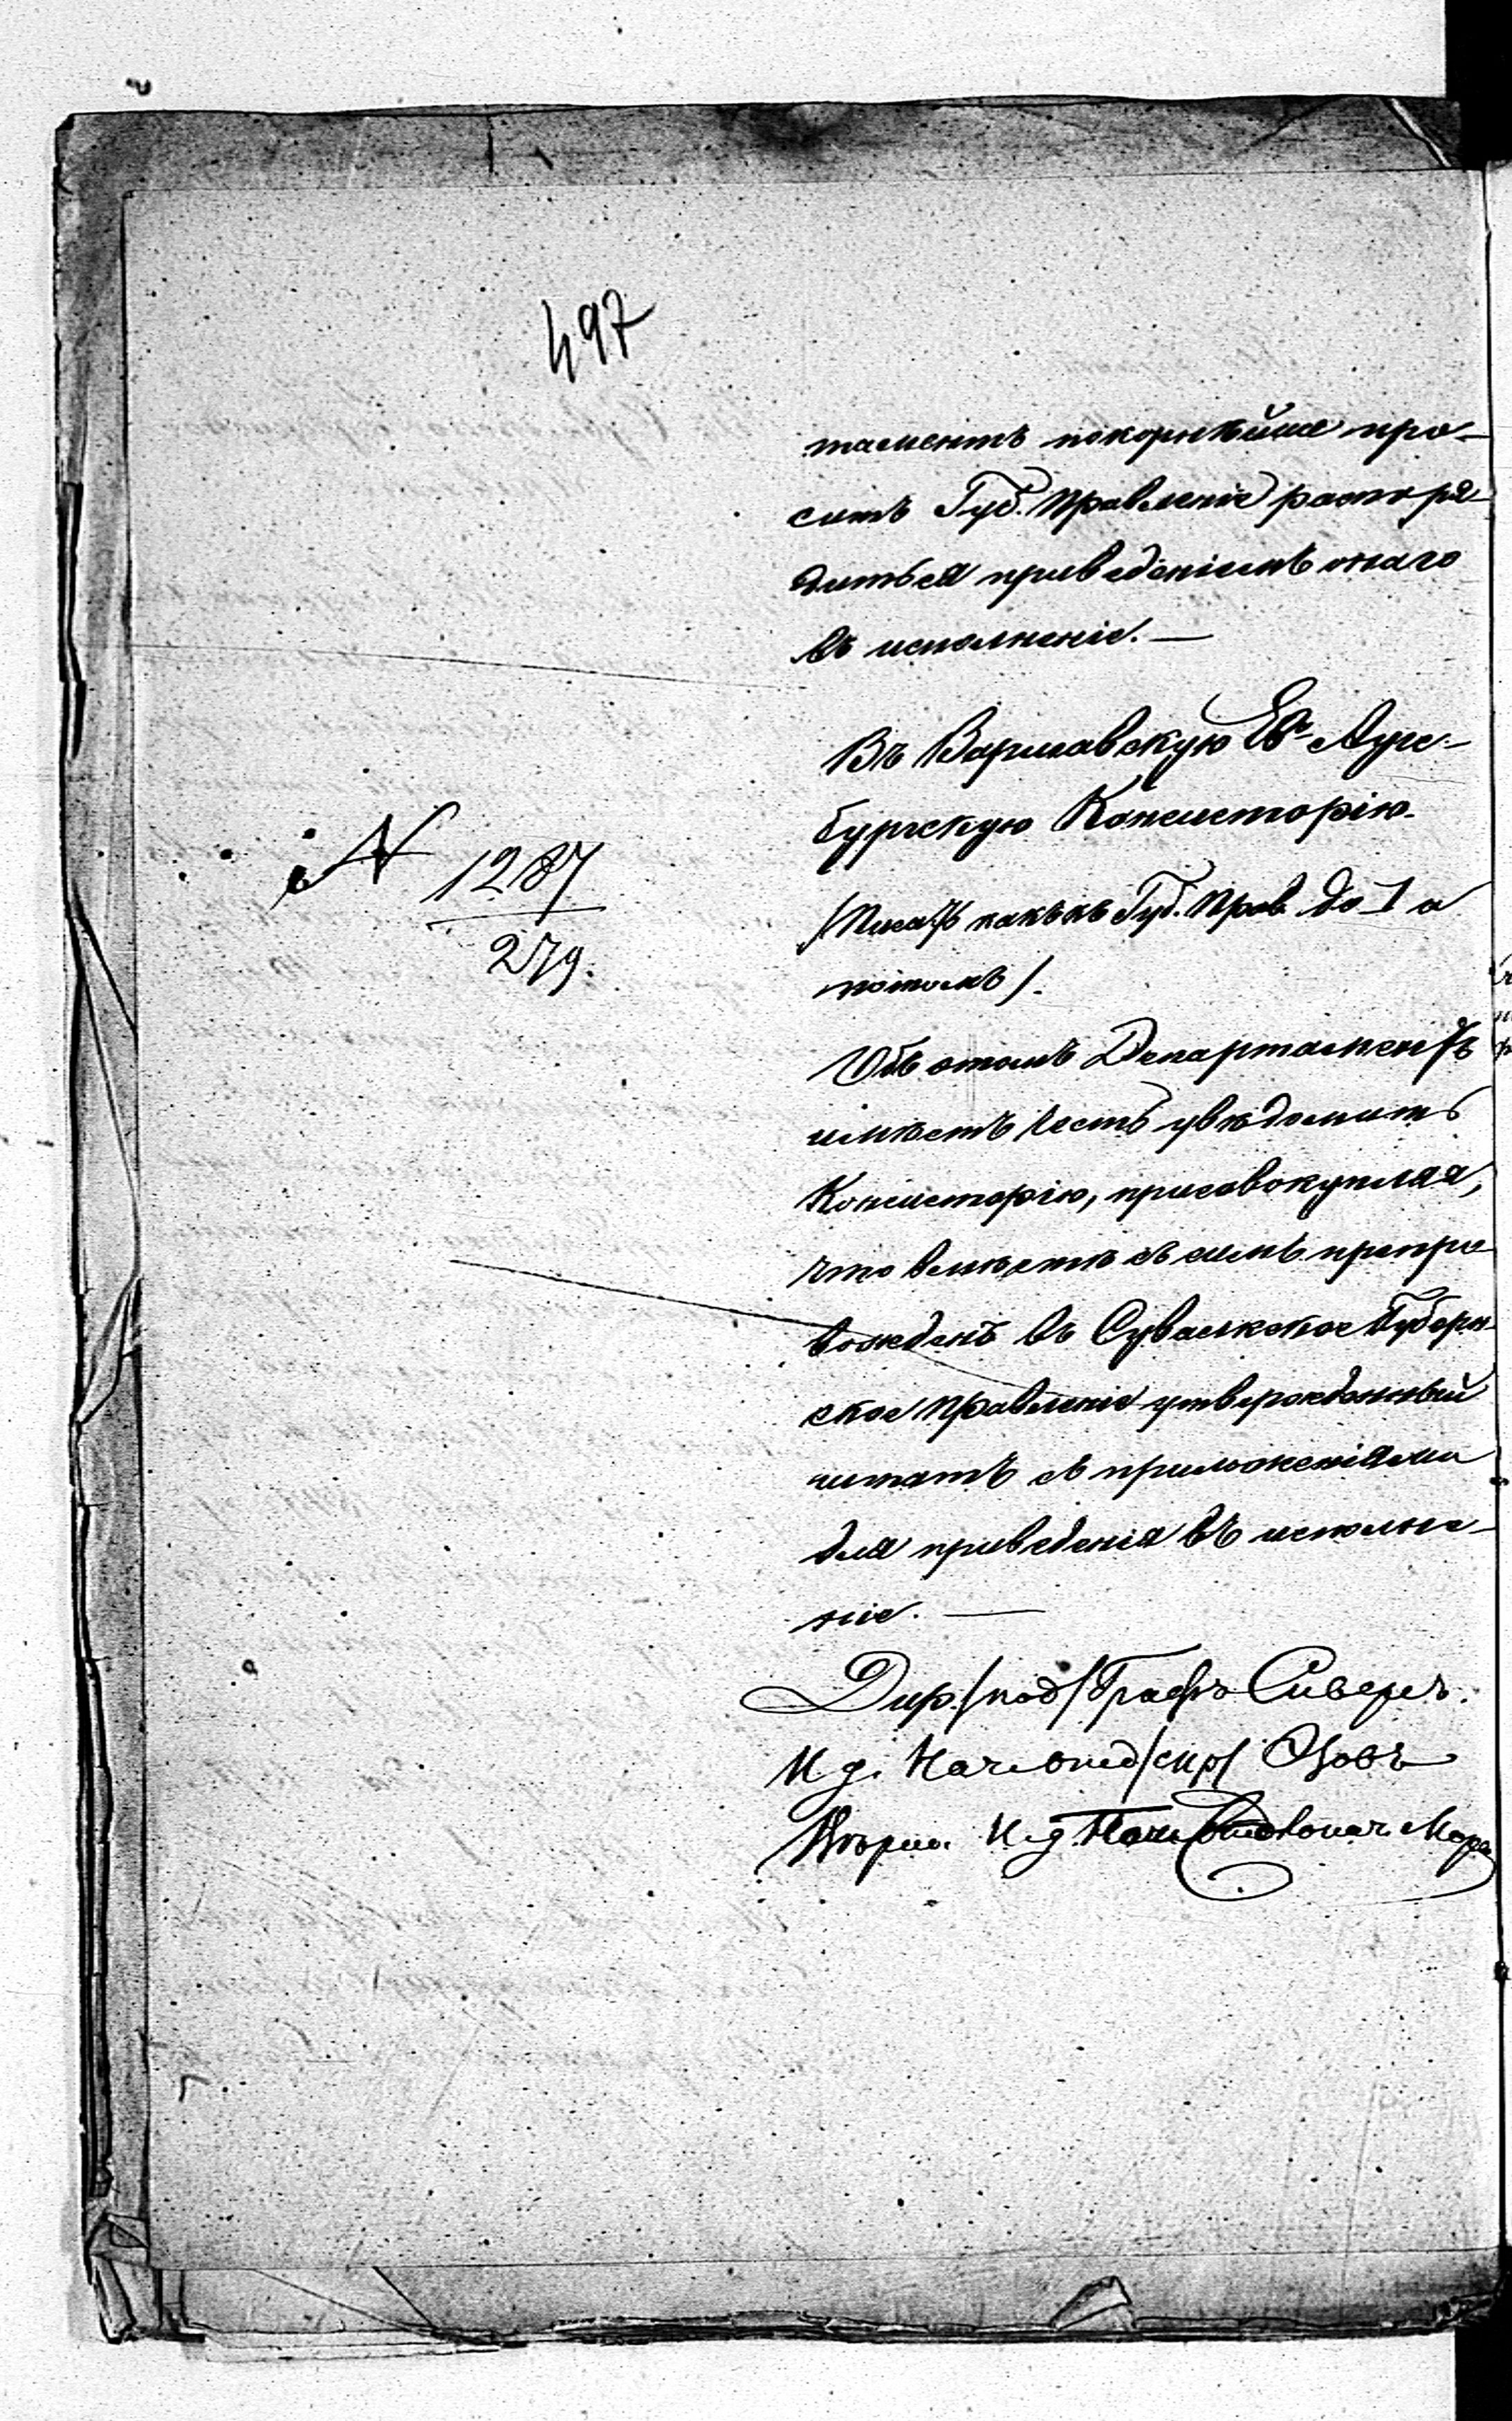 497
таментъ покорнѣйше про-
ситъ Губ. Правленіе распоря-
диться приведеніемъ онаго
въ исполненіе. —
Въ Варшавскую Ев. Аугс-
бургскую Консисторію.
№ 1287
279.
/Писать какъ въ Губ. Прав. до 1 а
потомъ/.
Объ этомъ Департаментъ
имѣетъ честь увѣдомить
Консисторію, присовокупляя,
что вмѣстѣ съ симъ препро
вожденъ въ Сувалкское Губерн-
ское Правленіе утвержденный
штатъ съ приложеніями
для приведенія въ исполне-
ніе. —
Дир. /под/ Графъ Сиверсъ.
И д. Нач. Отд /скр/
Вѣрно. И д